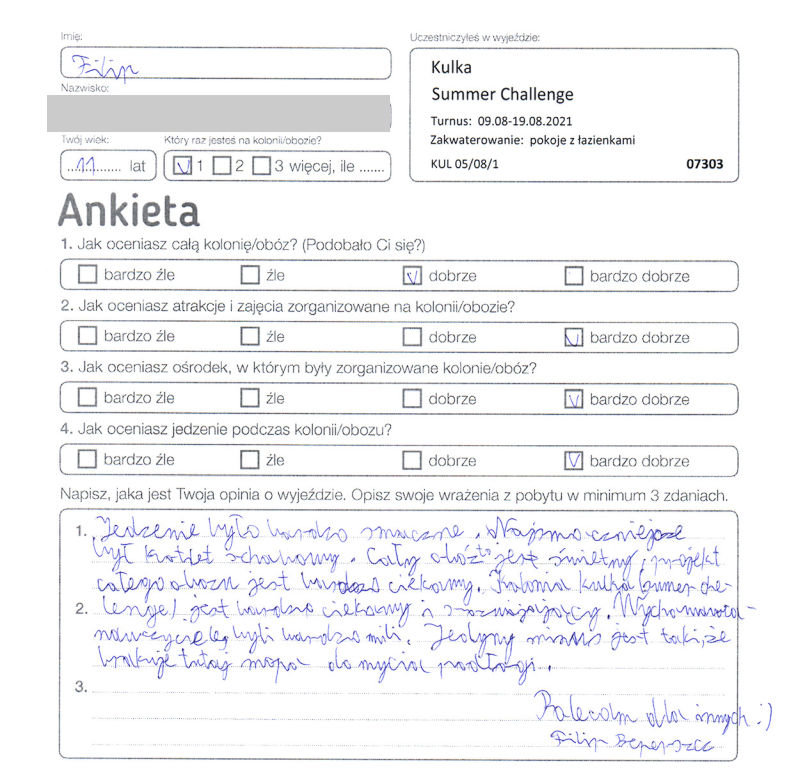 Imię:
Filip
Nazwisko:
Twój wiek:
Który raz jesteś na kolonii/obozie?
....11........ lat
V 1 2 3 więcej, ile .......
Uczestniczyłeś w wyjeździe:
Kulka
Summer Challenge
Turnus: 09.08-19.08.2021
Zakwaterowanie: pokoje z łazienkami
KUL 05/08/1 07303
Ankieta
1. Jak oceniasz całą kolonię/obóz? (Podobało Ci się?)
bardzo źle źle V dobrze bardzo dobrze
2. Jak oceniasz atrakcje i zajęcia zorganizowane na kolonii/obozie?
bardzo źle źle dobrze V bardzo dobrze
3. Jak oceniasz ośrodek, w którym były zorganizowane kolonie/obóz?
bardzo źle źle dobrze V bardzo dobrze
4. Jak oceniasz jedzenie podczas kolonii/obozu?
bardzo źle źle dobrze V bardzo dobrze
Napisz, jaka jest Twoja opinia o wyjeździe. Opisz swoje wrażenia z pobytu w minimum 3 zdaniach.
1. Jedzenie było bardzo smaczne. Najsmaczniejsze
był kotlet schabowy. Cały obóz jest świetny, projekt
całego obozu jest bardzo ciekawy. kulka (sumer che-
2. lenge) jest bardzo ciekawy i
byli bardzo mili. Jedyny minus jest taki, że
brakuje tutaj mopa do mycia podłogi.
3.
Polecam dla innych :)
Filip